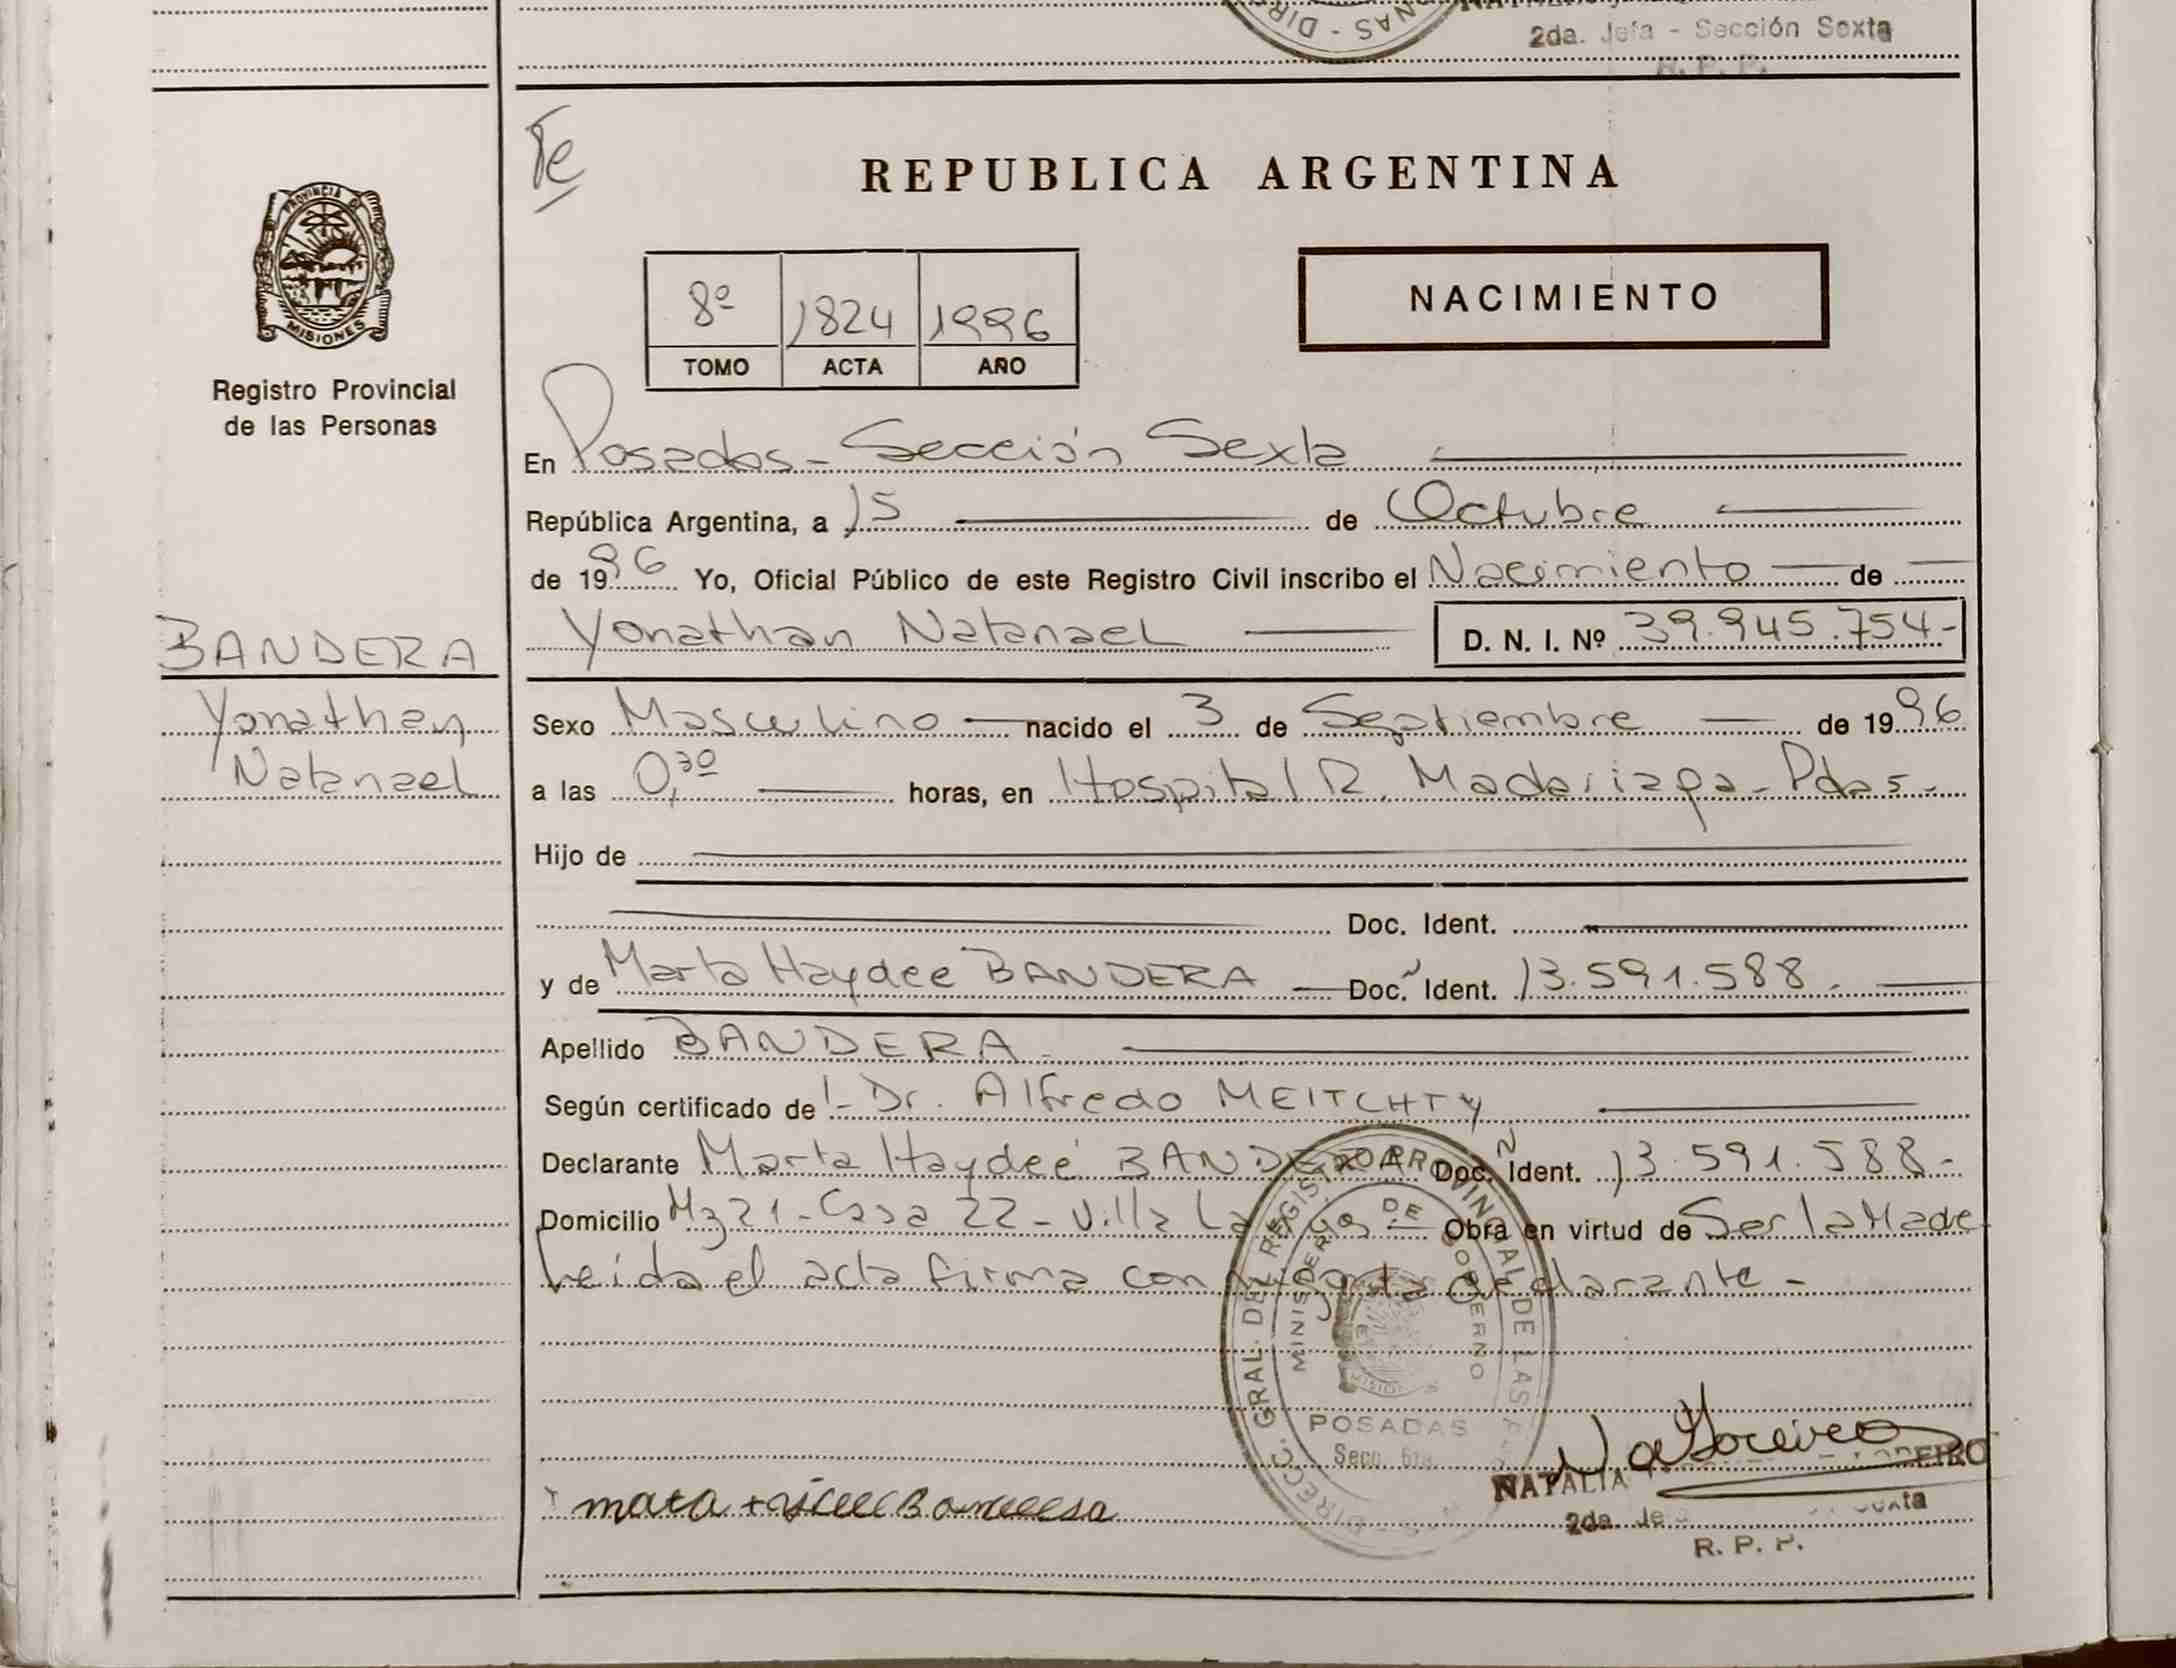 DIR - NAS
2da. Jefa - Sección Sexta
R. P. P.
PROVINCIA DE
MISIONES
Registro Provincial
de las Personas
BANDERA
Yonathan
Natanael
REPUBLICA ARGENTINA
8º 1824 1996
TOMO ACTA AÑO
NACIMIENTO
En Posadas - Sección Sexta
República Argentina, a 15 de Octubre
de 1996 Yo, Oficial Público de este Registro Civil inscribo el Nacimiento de
Yonathan Natanael D. N. I. Nº 39.945.754-
Sexo Masculino nacido el 3 de Septiembre de 1996
a las 0,30 horas, en Hospital R. Madariaga - Pdas -
Hijo de
Doc. Ident.
y de Marta Haydee BANDERA Doc. Ident. 13.591.588.
Apellido BANDERA -
Según certificado de l- Dr. Alfredo MEITCHTY
Declarante Marta Haydeé BANDERA Doc. Ident. 13.591.588-
Domicilio Mz 21 - Casa 22 - Villa La Obra en virtud de Ser la Madre
Leída el acta firma con declarante -
DIRECC. GRAL. DEL REGISTRO PROVINCIAL DE LAS
MINISTERIO DE GOBIERNO
POSADAS
Secc. 6ta
NATALIA
2da. Je
R. P. P.